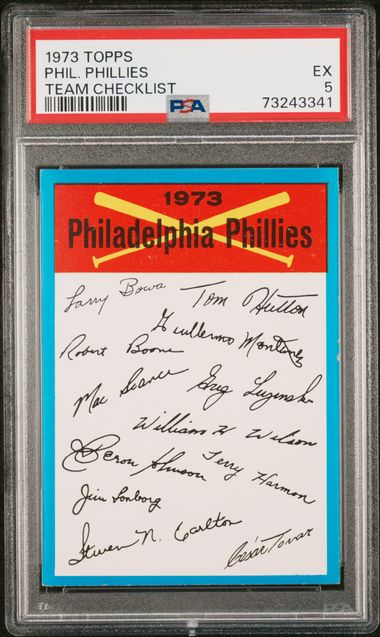 1973 TOPPS
PHIL. PHILLIES EX
TEAM CHECKLIST 5
PSA 73243341
1973
Philadelphia Phillies
Larry Bowa Tom Hutton
Guillermo Montinez
Robert Boone
Mac Scarce Greg Luzinski
William H Wilson
Deron Johnson Terry Harmon
Jim Lonborg
Steven N. Carlton César Tovar
PSA